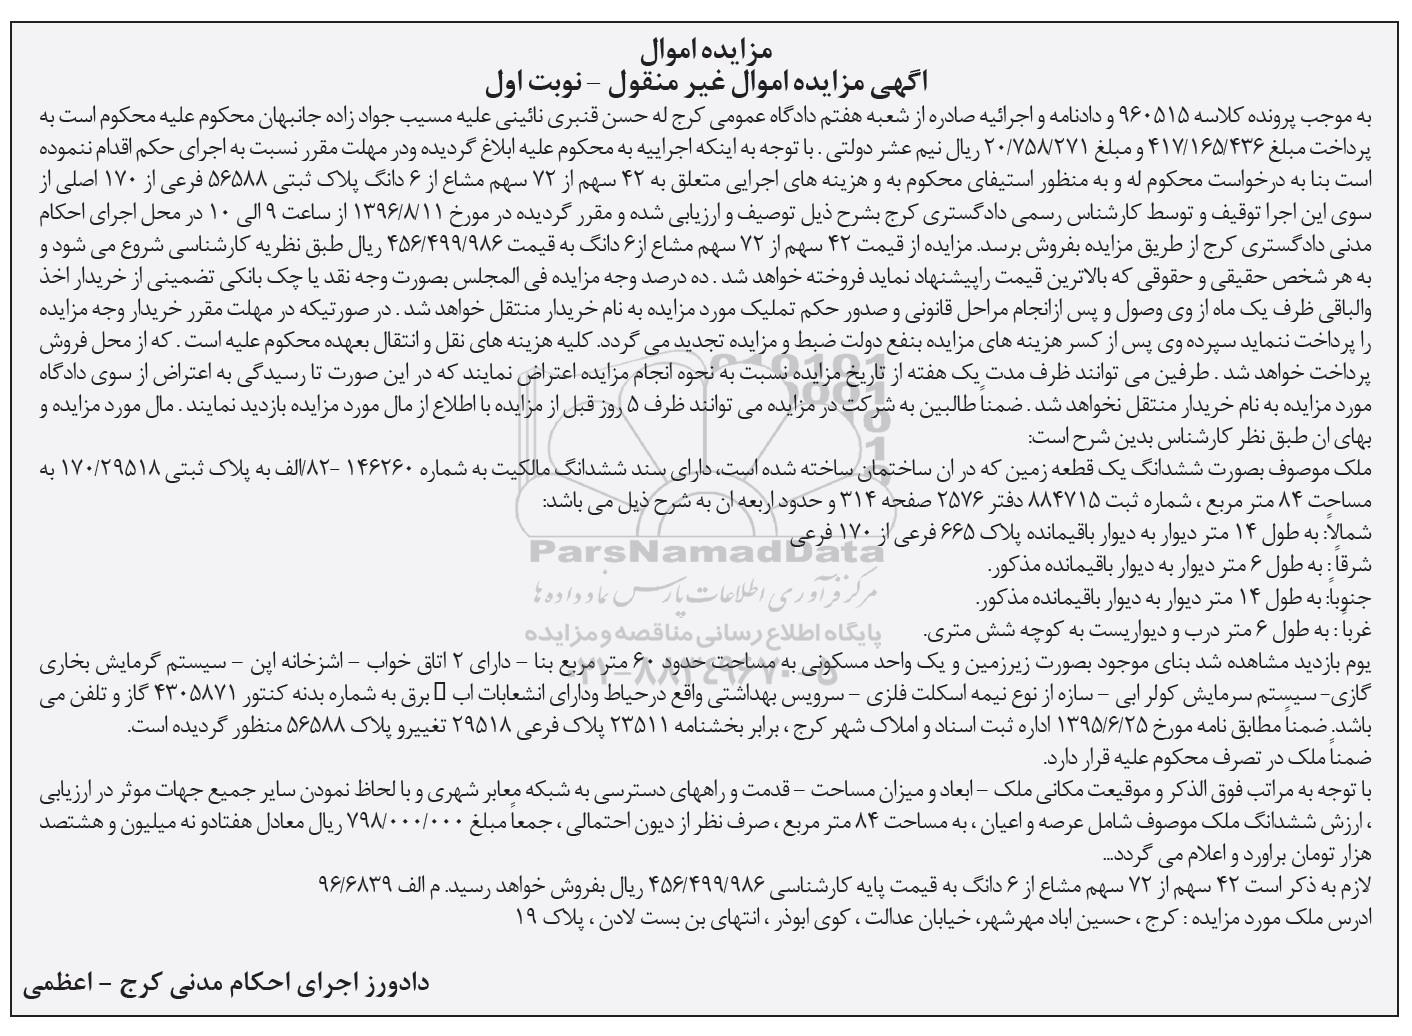 مزایده اموال
اگهی مزایده اموال غیر منقول – نوبت اول
به موجب پرونده کلاسه ۹۶۰۵۱۵ و دادنامه و اجرائیه صادره از شعبه هفتم دادگاه عمومی کرج له حسن قنبری نائینی علیه مسیب جواد زاده جانبهان محکوم علیه محکوم است به
پرداخت مبلغ ۴۱۷/۱۶۵/۴۳۶ و مبلغ ۲۰/۷۵۸/۲۷۱ ریال نیم عشر دولتی . با توجه به اینکه اجراییه به محکوم علیه ابلاغ گردیده ودر مهلت مقرر نسبت به اجرای حکم اقدام ننموده
است بنا به درخواست محکوم له و به منظور استیفای محکوم به و هزینه های اجرایی متعلق به ۴۲ سهم از ۷۲ سهم مشاع از ۶ دانگ پلاک ثبتی ۵۶۵۸۸ فرعی از ۱۷۰ اصلی از
سوی این اجرا توقیف و توسط کارشناس رسمی دادگستری کرج بشرح ذیل توصیف و ارزیابی شده و مقرر گردیده در مورخ ۱۳۹۶/۸/۱۱ از ساعت ۹ الی ۱۰ در محل اجرای احکام
مدنی دادگستری کرج از طریق مزایده بفروش برسد. مزایده از قیمت ۴۲ سهم از ۷۲ سهم مشاع از۶ دانگ به قیمت ۴۵۶/۴۹۹/۹۸۶ ریال طبق نظریه کارشناسی شروع می شود و
به هر شخص حقیقی و حقوقی که بالاترین قیمت راپیشنهاد نماید فروخته خواهد شد . ده درصد وجه مزایده فی المجلس بصورت وجه نقد یا چک بانکی تضمینی از خریدار اخذ
والباقی ظرف یک ماه از وی وصول و پس ازانجام مراحل قانونی و صدور حکم تملیک مورد مزایده به نام خریدار منتقل خواهد شد . در صورتیکه در مهلت مقرر خریدار وجه مزایده
را پرداخت ننماید سپرده وی پس از کسر هزینه های مزایده بنفع دولت ضبط و مزایده تجدید می گردد. کلیه هزینه های نقل و انتقال بعهده محکوم علیه است . که از محل فروش
پرداخت خواهد شد . طرفین می توانند ظرف مدت یک هفته از تاریخ مزایده نسبت به نحوه انجام مزایده اعتراض نمایند که در این صورت تا رسیدگی به اعتراض از سوی دادگاه
مورد مزایده به نام خریدار منتقل نخواهد شد . ضمناً طالبین به شرکت در مزایده می توانند ظرف ۵ روز قبل از مزایده با اطلاع از مال مورد مزایده بازدید نمایند . مال مورد مزایده و
بهای ان طبق نظر کارشناس بدین شرح است:
ملک موصوف بصورت ششدانگ یک قطعه زمین که در ان ساختمان ساخته شده است، دارای سند ششدانگ مالکیت به شماره ۱۴۶۲۶۰ –۸۲/الف به پلاک ثبتی ۱۷۰/۲۹۵۱۸ به
مساحت ۸۴ متر مربع ، شماره ثبت ۸۸۴۷۱۵ دفتر ۲۵۷۶ صفحه ۳۱۴ و حدود اربعه ان به شرح ذیل می باشد:
شمالاً: به طول ۱۴ متر دیوار به دیوار باقیمانده پلاک ۶۶۵ فرعی از ۱۷۰ فرعی
ParsNamadData
شرقاً : به طول ۶ متر دیوار به دیوار باقیمانده مذکور.
مرکز فرآوری اطلاعات پارس نماد داده ها
جنوباً: به طول ۱۴ متر دیوار به دیوار باقیمانده مذکور.
غرباً : به طول ۶ متر درب و دیواریست به کوچه شش متری.
پایگاه اطلاع رسانی مناقصه و مزایده
یوم بازدید مشاهده شد بنای موجود بصورت زیرزمین و یک واحد مسکونی به مساحت حدود ۶۰ متر مربع بنا – دارای ۲ اتاق خواب – اشزخانه اپن – سیستم گرمایش بخاری
۰۲۱–۸۸۳۴۹۶۷۰–۵
گازی- سیستم سرمایش کولر ابی – سازه از نوع نیمه اسکلت فلزی – سرویس بهداشتی واقع درحیاط ودارای انشعابات اب برق به شماره بدنه کنتور ۴۳۰۵۸۷۱ گاز و تلفن می
باشد. ضمناً مطابق نامه مورخ ۱۳۹۵/۶/۲۵ اداره ثبت اسناد و املاک شهر کرج ، برابر بخشنامه ۲۳۵۱۱ پلاک فرعی ۲۹۵۱۸ تغییرو پلاک ۵۶۵۸۸ منظور گردیده است.
ضمناً ملک در تصرف محکوم علیه قرار دارد.
با توجه به مراتب فوق الذکر و موقیعت مکانی ملک – ابعاد و میزان مساحت – قدمت و راههای دسترسی به شبکه معابر شهری و با لحاظ نمودن سایر جمیع جهات موثر در ارزیابی
، ارزش ششدانگ ملک موصوف شامل عرصه و اعیان ، به مساحت ۸۴ متر مربع ، صرف نظر از دیون احتمالی ، جمعاً مبلغ ۷۹۸/۰۰۰/۰۰۰ ریال معادل هفتادو نه میلیون و هشتصد
هزار تومان براورد و اعلام می گردد...
لازم به ذکر است ۴۲ سهم از ۷۲ سهم مشاع از ۶ دانگ به قیمت پایه کارشناسی ۴۵۶/۴۹۹/۹۸۶ ریال بفروش خواهد رسید. م الف ۹۶/۶۸۳۹
ادرس ملک مورد مزایده : کرج ، حسین اباد مهرشهر، خیابان عدالت ، کوی ابوذر ، انتهای بن بست لادن ، پلاک ۱۹
دادورز اجرای احکام مدنی کرج – اعظمی